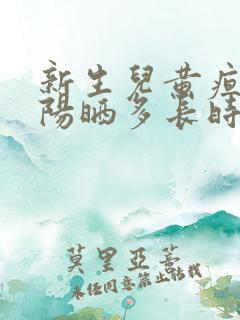 新生兒黄疸
陽晒多长時
莫里亞蒂
未经同意禁止转载